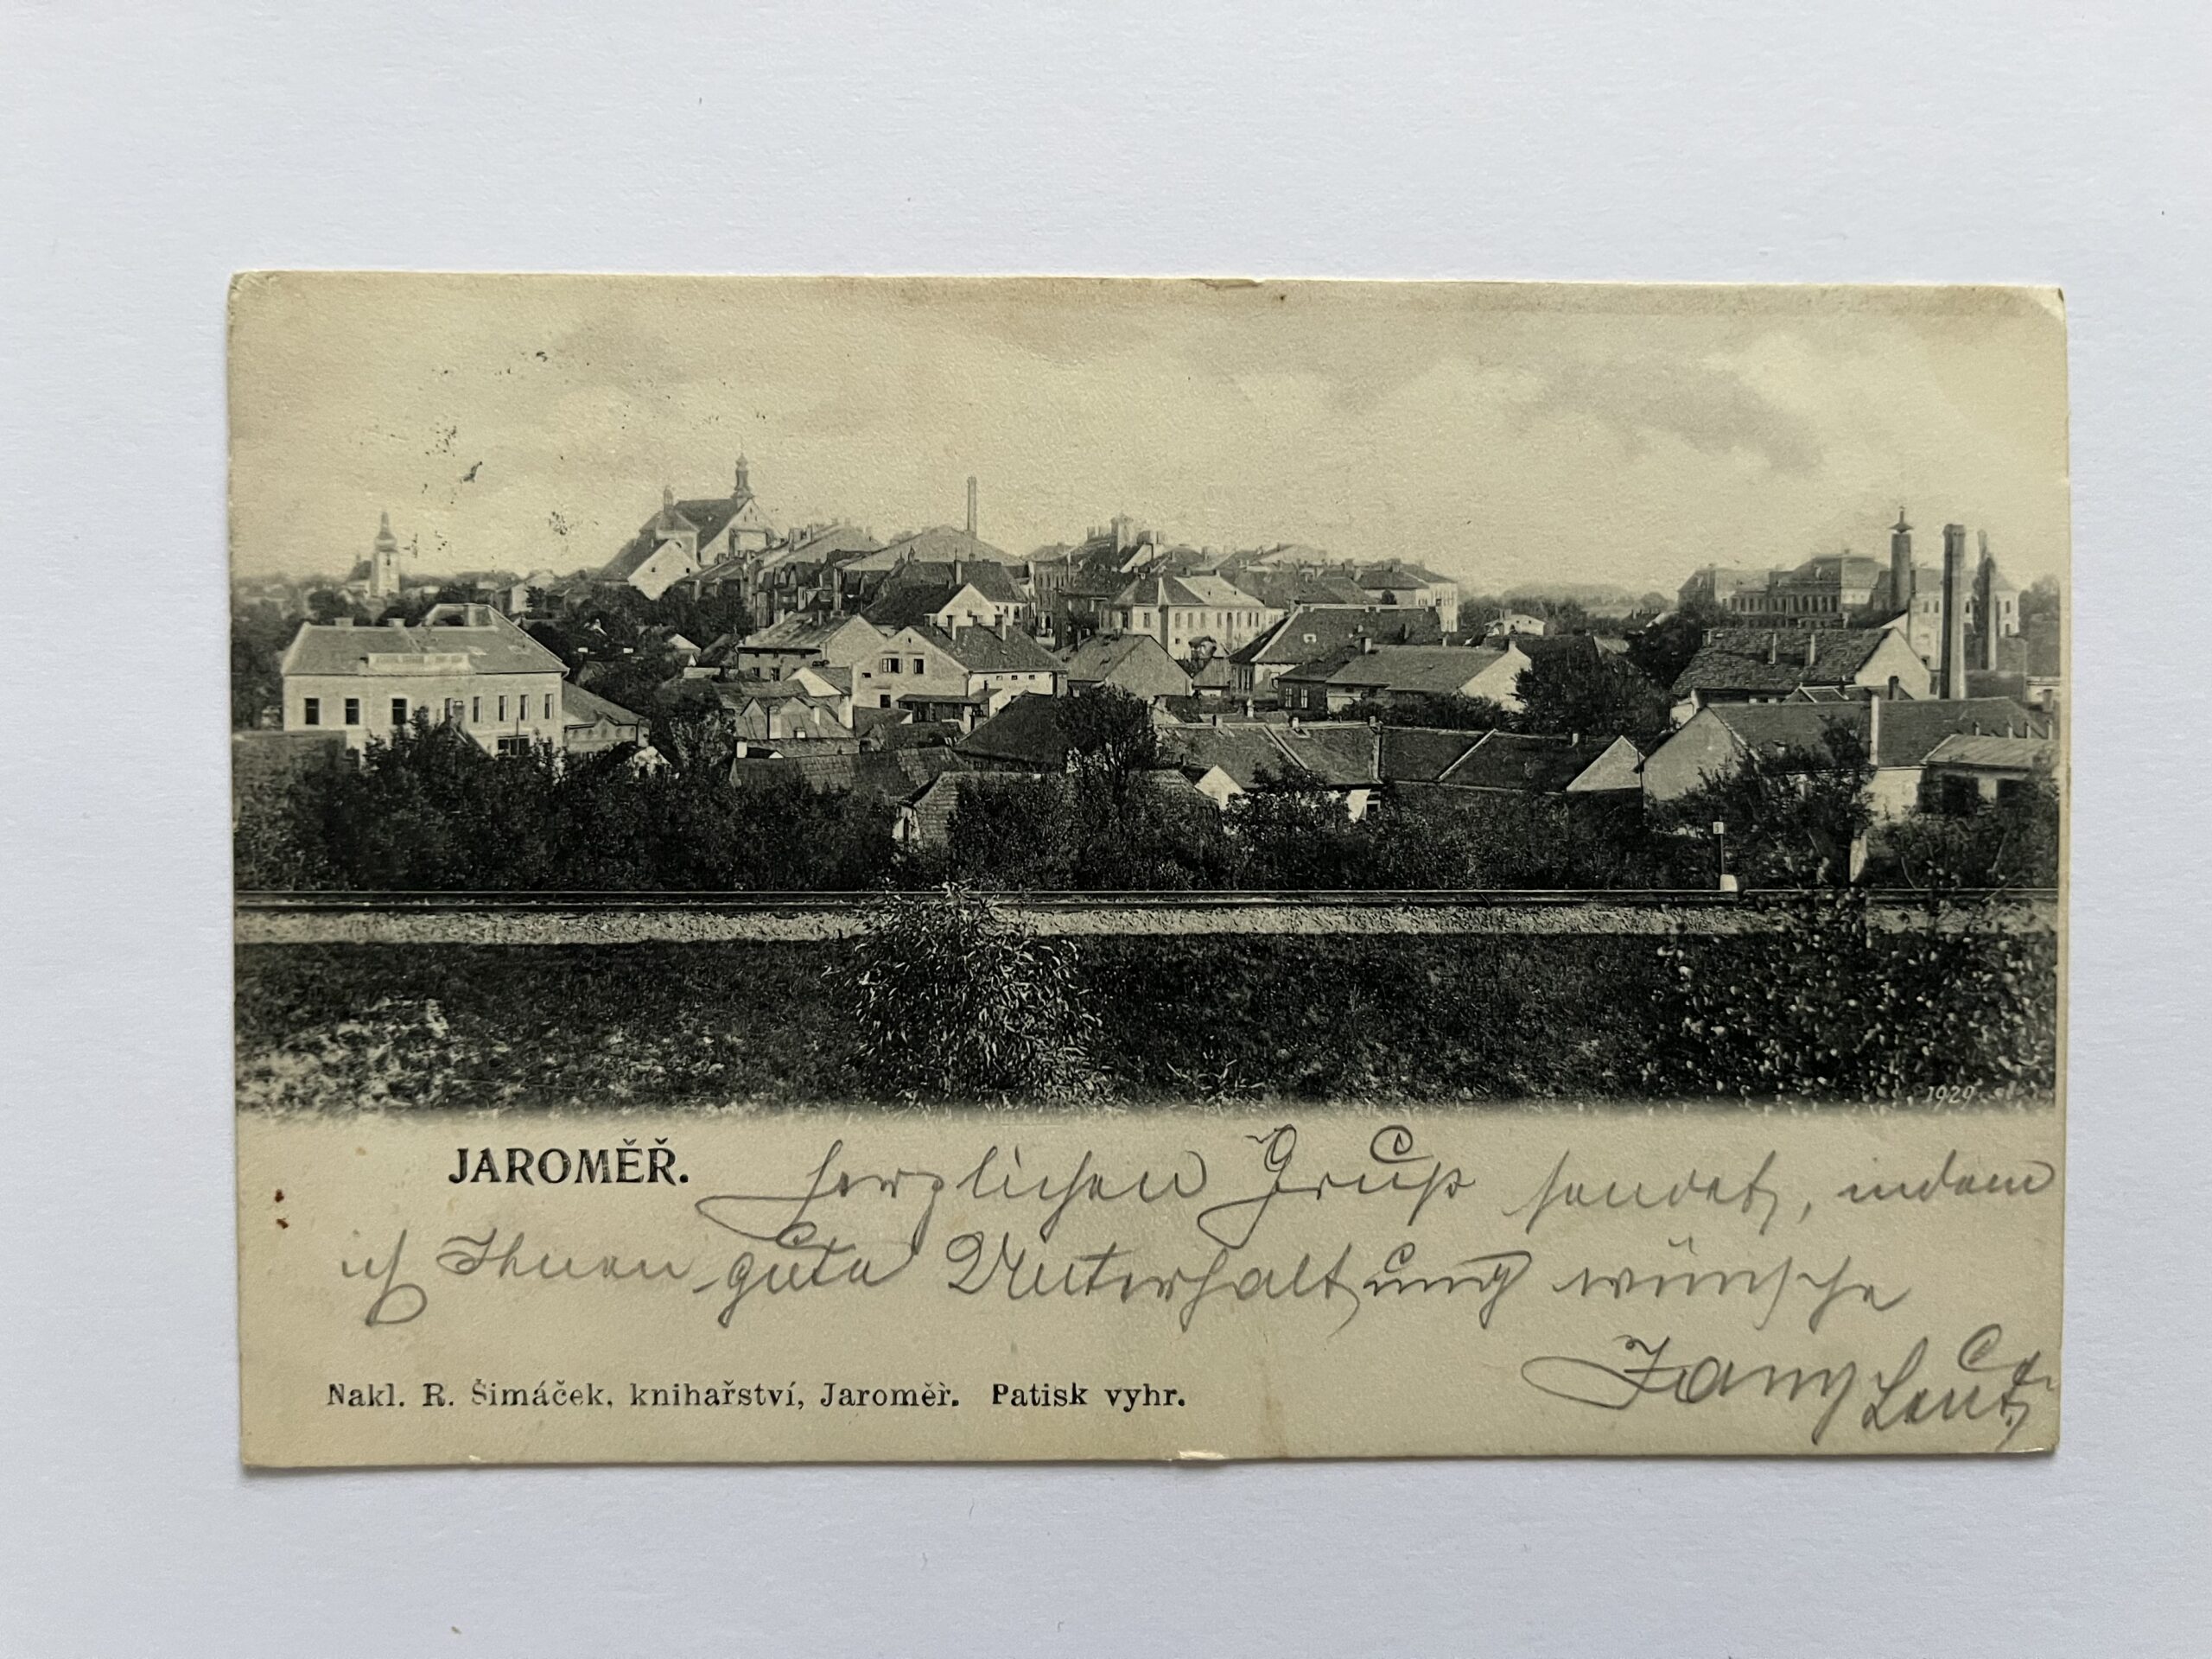 1929
JAROMĚŘ.
Herzlichen Gruß sendet, indem
ich Ihnen gute Unterhaltung wünsche
Nakl. R. Šimáček, knihařství, Jaroměř. Patisk vyhr.